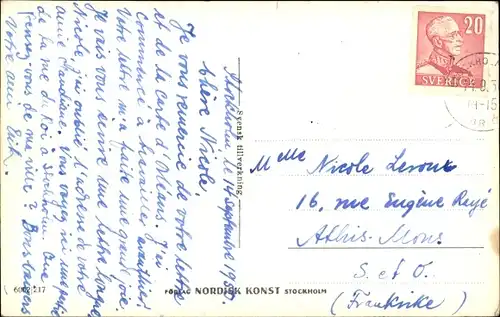 Stockholm, le 14 septembre 19
Chère Nicole,
Je vous remercie de votre lettre
et de la carte d'Orléans. J'ai
commencé à travailler
Votre lettre m'a faite une grande joie.
Je vais vous écrire une lettre longue,
Nicole, j'ai oublié l'adresse de votre
amie Claudiane. Vous voyez ici une partie
de la rue du Roi à Stockholm. Que
pensez-vous de ma ville?
Votre ami Erik.
Svensk tillverkning
6002/217
FÖRLAG NORDISK KONST STOCKHOLM
20
SVERIGE
Mlle Nicole Leroux
16, rue Eugène
Athis-Mons
S. et O.
(Frankrike)